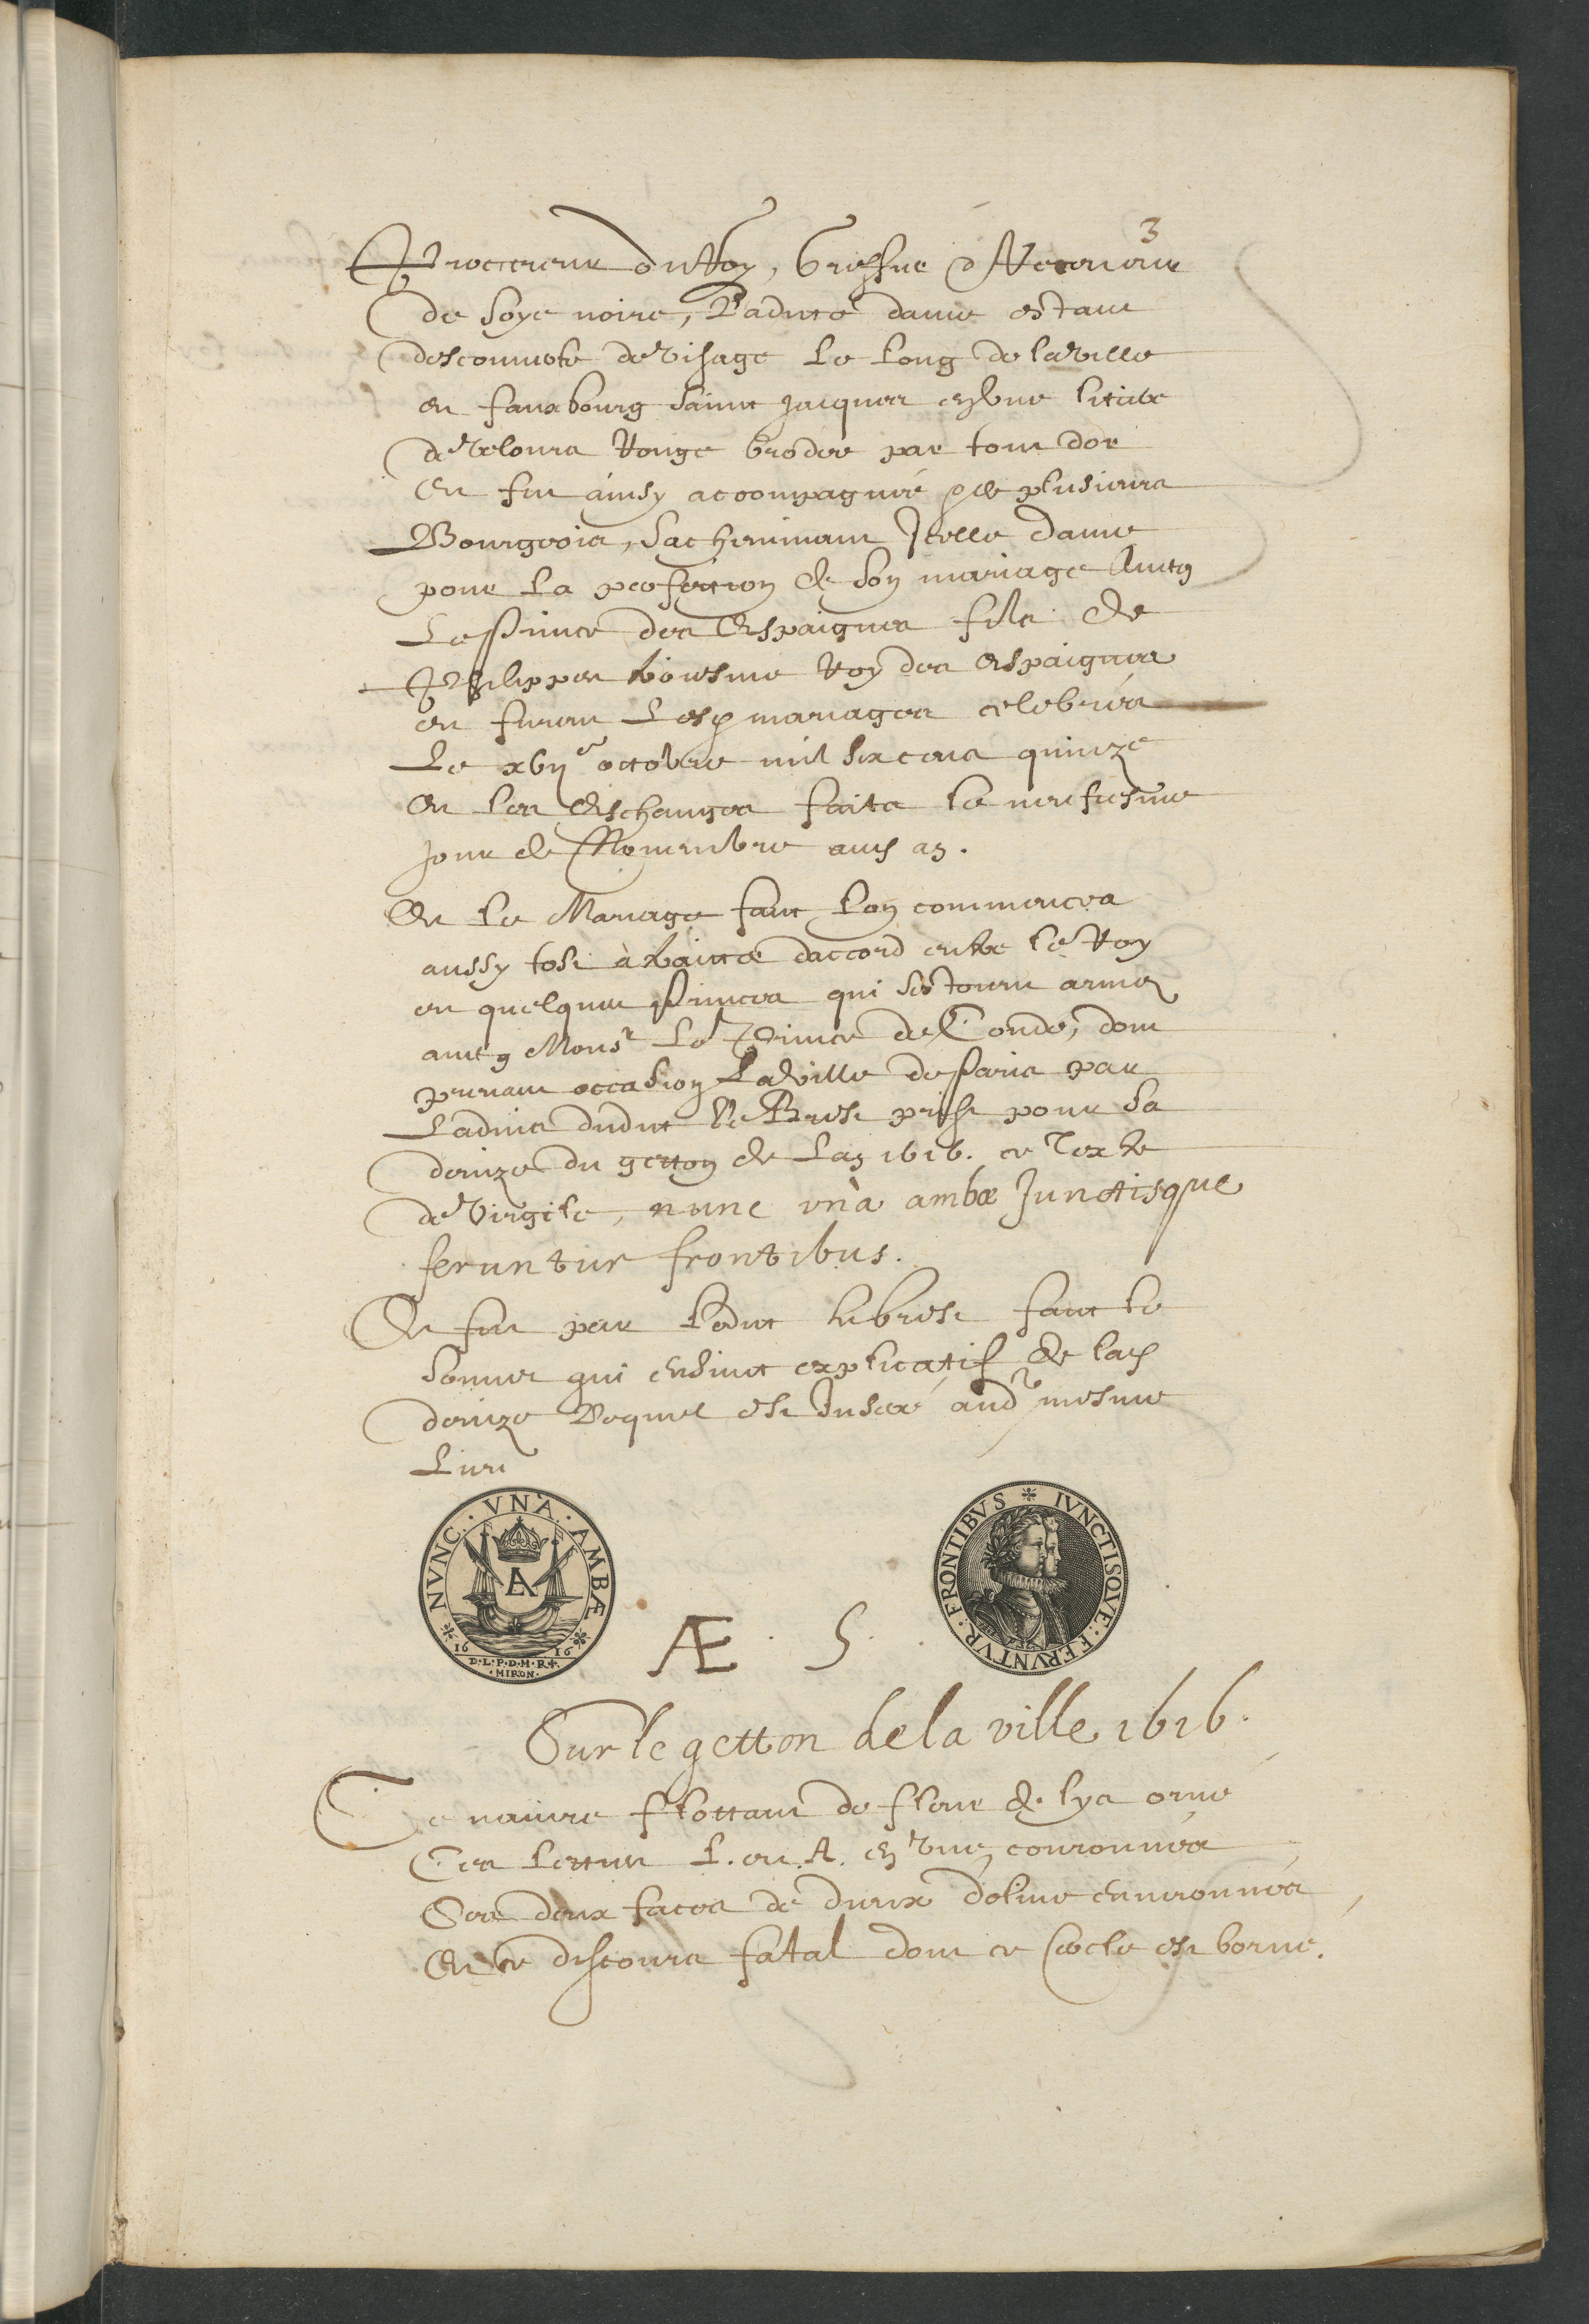 3
Procureur du Roy, Greffier & Receveur
de soye noire, Ladicte dame estant
descouverte de visage le long de la ville
et fauxbourg Sainct Jacques en une lictiere
de veloux Rouge brodee par tout dor
Et fut ainsy accompagnée de plusieurs
Bourgeois, Sacheminant Icelle dame
pour la perfection de son mariage avecq
Le Prince des Espaignes filz de
Philippes troiesme Roy des Espaignes
et furent Lesd mariages celebrés
Le xviije octobre mil six cens quinze
Et les Eschanges faits le neufiesme
Jour de Novembre aud an.
Et le Mariage faict lon commencea
aussy tost à traicter daccord entre le Roy
et quelques Princes qui sestoient armez
avecq Monsr Le Prince de Condé, dont
prenant occasion La ville de Paris par
Ladvis dudict de Brest prist pour sa
devize du getton de Lan 1616. ce Texte
de Virgile, nunc unà ambæ Junctisque
feruntur frontibus.
Et fut par ledict de brest faict le
Sonnet qui ensuict explicatif de lad
devize Lequel est Inseré aud mesme
Livre
NVNC · VNA · AMBÆ
A
16 16
D·L·P·D·M·R+
·MIRON·
Æ . S .
IVNCTISQVE · FERVNTVR · FRONTIBVS
Sur le getton de la ville 1616.
Ce navire flottant de fleur de lys orné
Ces lettres L. et A. en une couronnées
Ces deux faces de deux d'olive environnées,
Et ce discours fatal dont ce siecle est borné.